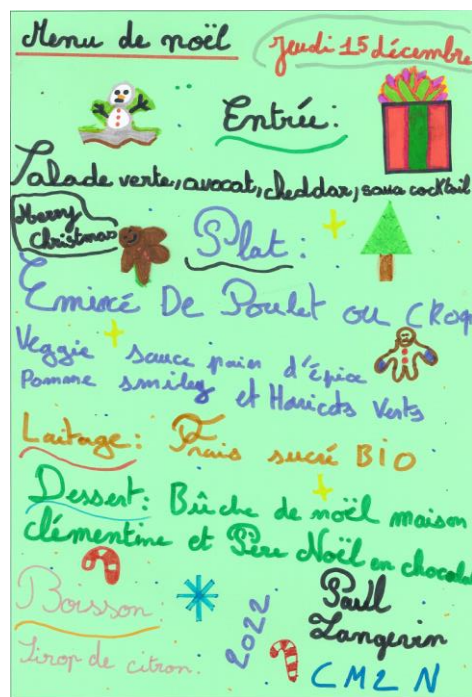 Menu de noël
Jeudi 15 décembre
Entrée:
Salade verte, avocat, cheddar, sauce cocktail
Merry
Christmas
Plat:
Emincé De Poulet ou CRoq
Veggie sauce pain d'épice
Pomme smiley et Haricots Verts
Laitage: Frais sucré BIO
Dessert: Bûche de noël maison
clémentine et Père Noël en chocolat
Boisson
Sirop de citron.
2022
Paul
Langevin
CM2 N